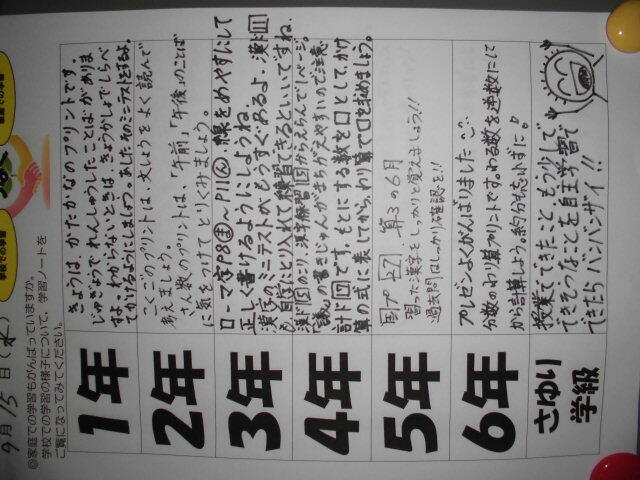 9月15日(水)
◎家庭での学習もがんばっていますか。
学校での学習の様子について、学習ノートを
ご覧になってみてください。
1年
きょうは、かたかなのプリントです。
じゅぎょうでれんしゅうしたことばがありま
すよ。わからないときは、きょうかしょでしらべ
てかけるようにしましょう。あしたわミニテストをするよ。
2年
こくごのプリントは、文しょうをよく読んで
考えましょう。
さん数のプリントは、「午前」「午後」のことば
に気をつけてとりくみましょう。
3年
ローマ字P8～P11 線をめやすにして
正しく書けるようにしようね。
漢字のミニテストがもうすぐあるよ。漢ド11
も自学にとり入れて練習できるといいですね。
4年
「議」の書きじゅんがまちがえやすいので注意
計ド回です。もとにする数を口として、かけ
算の式に表してから、わり算で口を求めましょう。
5年
国プ 算3の6月
習った漢字をしっかりと覚えましょう!!
過去問はしっかり確認を!!
6年
プレゼンよくがんばりました
分数のわり算プリントです。わる数を逆数にして
から計算しよう。約分も忘れずに♪
さゆり
学級
授業でてきたこと もう少しで
できそうなことを自主学習で
できたらバンバンザイ!!